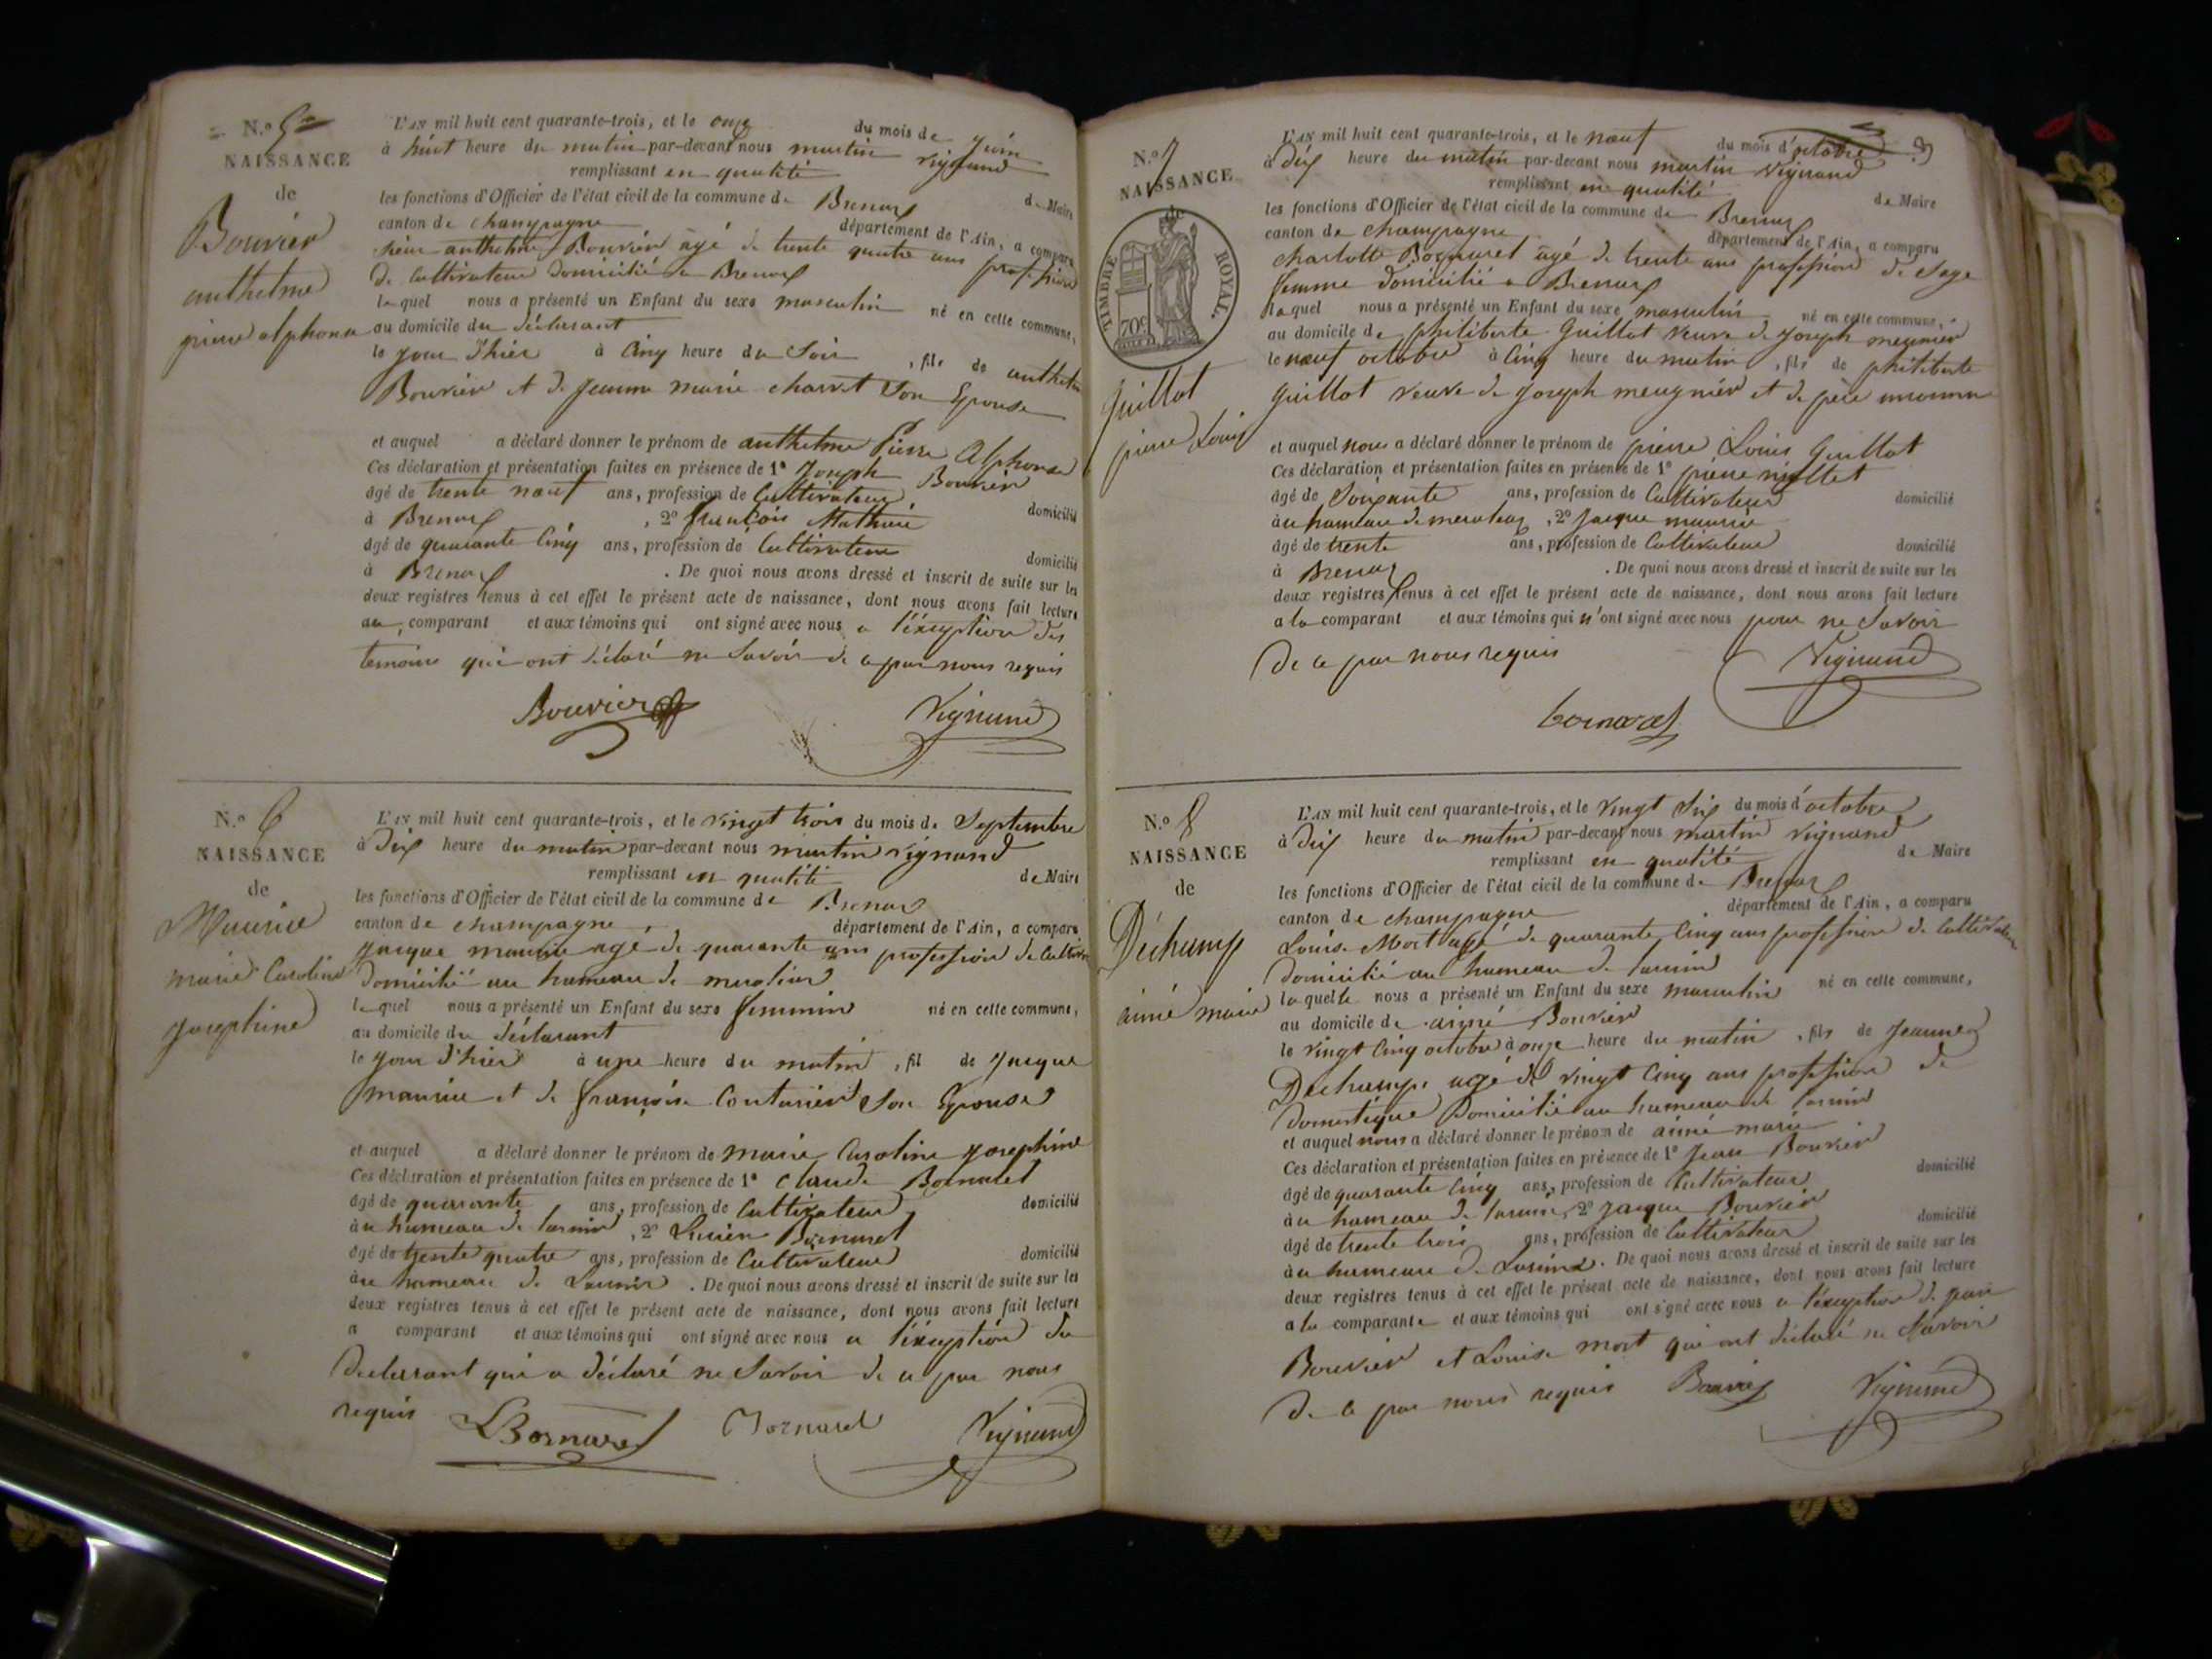 N.º 5
NAISSANCE
de
Bouvier
anthelme
pierre alphonse
L'AN mil huit cent quarante-trois, et le onze du mois de Juin
à huit heure du matin par-devant nous martin vignand
remplissant en qualité de Maire
les fonctions d'Officier de l'état civil de la commune de Brenaz
canton de champagne département de l'Ain, a comparu
anthelme Bouvier agé de trente quatre ans profession
de Cultivateur domicilié a Brenaz
lequel nous a présenté un Enfant du sexe masculin né en cette commune,
au domicile du déclarant
le jour d'hier à Cinq heure du Soir, fils de anthelme
Bouvier et de jeanne marie charvet Son Epouse
et auquel a déclaré donner le prénom de anthelme Pierre Alphonse
Ces déclaration et présentation faites en présence de 1º Joseph Bouvier
âgé de trente neuf ans, profession de Cultivateur domicilié
à Brenaz, 2º françois Mathieu
âgé de quarante Cinq ans, profession de Cultivateur domicilié
à Brenaz. De quoi nous avons dressé et inscrit de suite sur les
deux registres tenus à cet effet le présent acte de naissance, dont nous avons fait lecture
au comparant et aux témoins qui ont signé avec nous a l'éxception des
temoins qui ont déclaré ne Savoir de ce par nous requis
Bouvier Vignand
N.º 6
NAISSANCE
de
Maurice
marie Caroline
josephine
L'AN mil huit cent quarante-trois, et le vingt trois du mois de Septembre
à Dix heure du matin par-devant nous martin vignand
remplissant en qualité de Maire
les fonctions d'Officier de l'état civil de la commune de Brenaz
canton de champagne département de l'Ain, a comparu
jacque maurice agé de quarante ans profession de Cultivateur
domicilié au hameau de
lequel nous a présenté un Enfant du sexe feminin né en cette commune,
au domicile du déclarant
le jour d'hier à une heure du matin, fil de jacque
maurice et de françoise Couturier Son Epouse
et auquel a déclaré donner le prénom de marie Caroline josephine
Ces déclaration et présentation faites en présence de 1º Claude Bornaret
âgé de quarante ans, profession de Cultivateur domicilié
à au hameau de, 2º Lucien Bornaret
âgé de trente quatre ans, profession de Cultivateur domicilié
à au hameau de. De quoi nous avons dressé et inscrit de suite sur les
deux registres tenus à cet effet le présent acte de naissance, dont nous avons fait lecture
a comparant et aux témoins qui ont signé avec nous a l'éxception du
declarant qui a déclaré ne Savoir de ce par nous
requis LBornaret Bornaret Vignand
3
N.º 7
NAISSANCE
de
TIMBRE ROYAL.
70c
guillot
pierre Louis
L'AN mil huit cent quarante-trois, et le neuf du mois d'octobre
à Dix heure du matin par-devant nous martin vignand
remplissant en qualité de Maire
les fonctions d'Officier de l'état civil de la commune de Brenaz
canton de champagne département de l'Ain, a comparu
charlotte Bornaret agé de trente ans profession de Sage
femme domicilié a Brenaz
laquel nous a présenté un Enfant du sexe masculin né en cette commune,
au domicile de philiberte Guillot veuve de joseph meugnier
le neuf octobre à Cinq heure du matin, fils de philiberte
guillot veuve de joseph meugnier et de père inconnu
et auquel nous a déclaré donner le prénom de pierre Louis Guillot
Ces déclaration et présentation faites en présence de 1º pierre
âgé de Soixante ans, profession de Cultivateur domicilié
à au hameau de, 2º jacque maurice
âgé de trente ans, profession de Cultivateur domicilié
à Brenaz. De quoi nous avons dressé et inscrit de suite sur les
deux registres tenus à cet effet le présent acte de naissance, dont nous avons fait lecture
a la comparant et aux témoins qui n'ont signé avec nous pour ne Savoir
de ce par nous requis Vignand
bornaret
N.º 8
NAISSANCE
de
Déchamp
aimé marie
L'AN mil huit cent quarante-trois, et le vingt Six du mois d'octobre
à Dix heure du matin par-devant nous martin vignand
remplissant en qualité de Maire
les fonctions d'Officier de l'état civil de la commune de Brenaz
canton de champagne département de l'Ain, a comparu
Louise Mort agé de quarante Cinq ans profession de Cultivateur
domicilié au hameau de
laquelle nous a présenté un Enfant du sexe masculin né en cette commune,
au domicile de aimé Bouvier
le vingt Cinq octobre à onze heure du matin, fils de Jeanne
Dechamp agé de vingt Cinq ans profession de
domestique Domicilié au hameau de
et auquel nous a déclaré donner le prénom de aimé marie
Ces déclaration et présentation faites en présence de 1º Jean Bouvier
âgé de quarante Cinq ans, profession de Cultivateur domicilié
à au hameau de, 2º jacque Bouvier
âgé de trente trois ans, profession de Cultivateur domicilié
à au hameau de. De quoi nous avons dressé et inscrit de suite sur les
deux registres tenus à cet effet le présent acte de naissance, dont nous avons fait lecture
a la comparante et aux témoins qui ont signé avec nous a l'éxception de
Bouvier et Louise mort qui ont déclaré ne Savoir
de ce par nous requis Bouvier Vignand